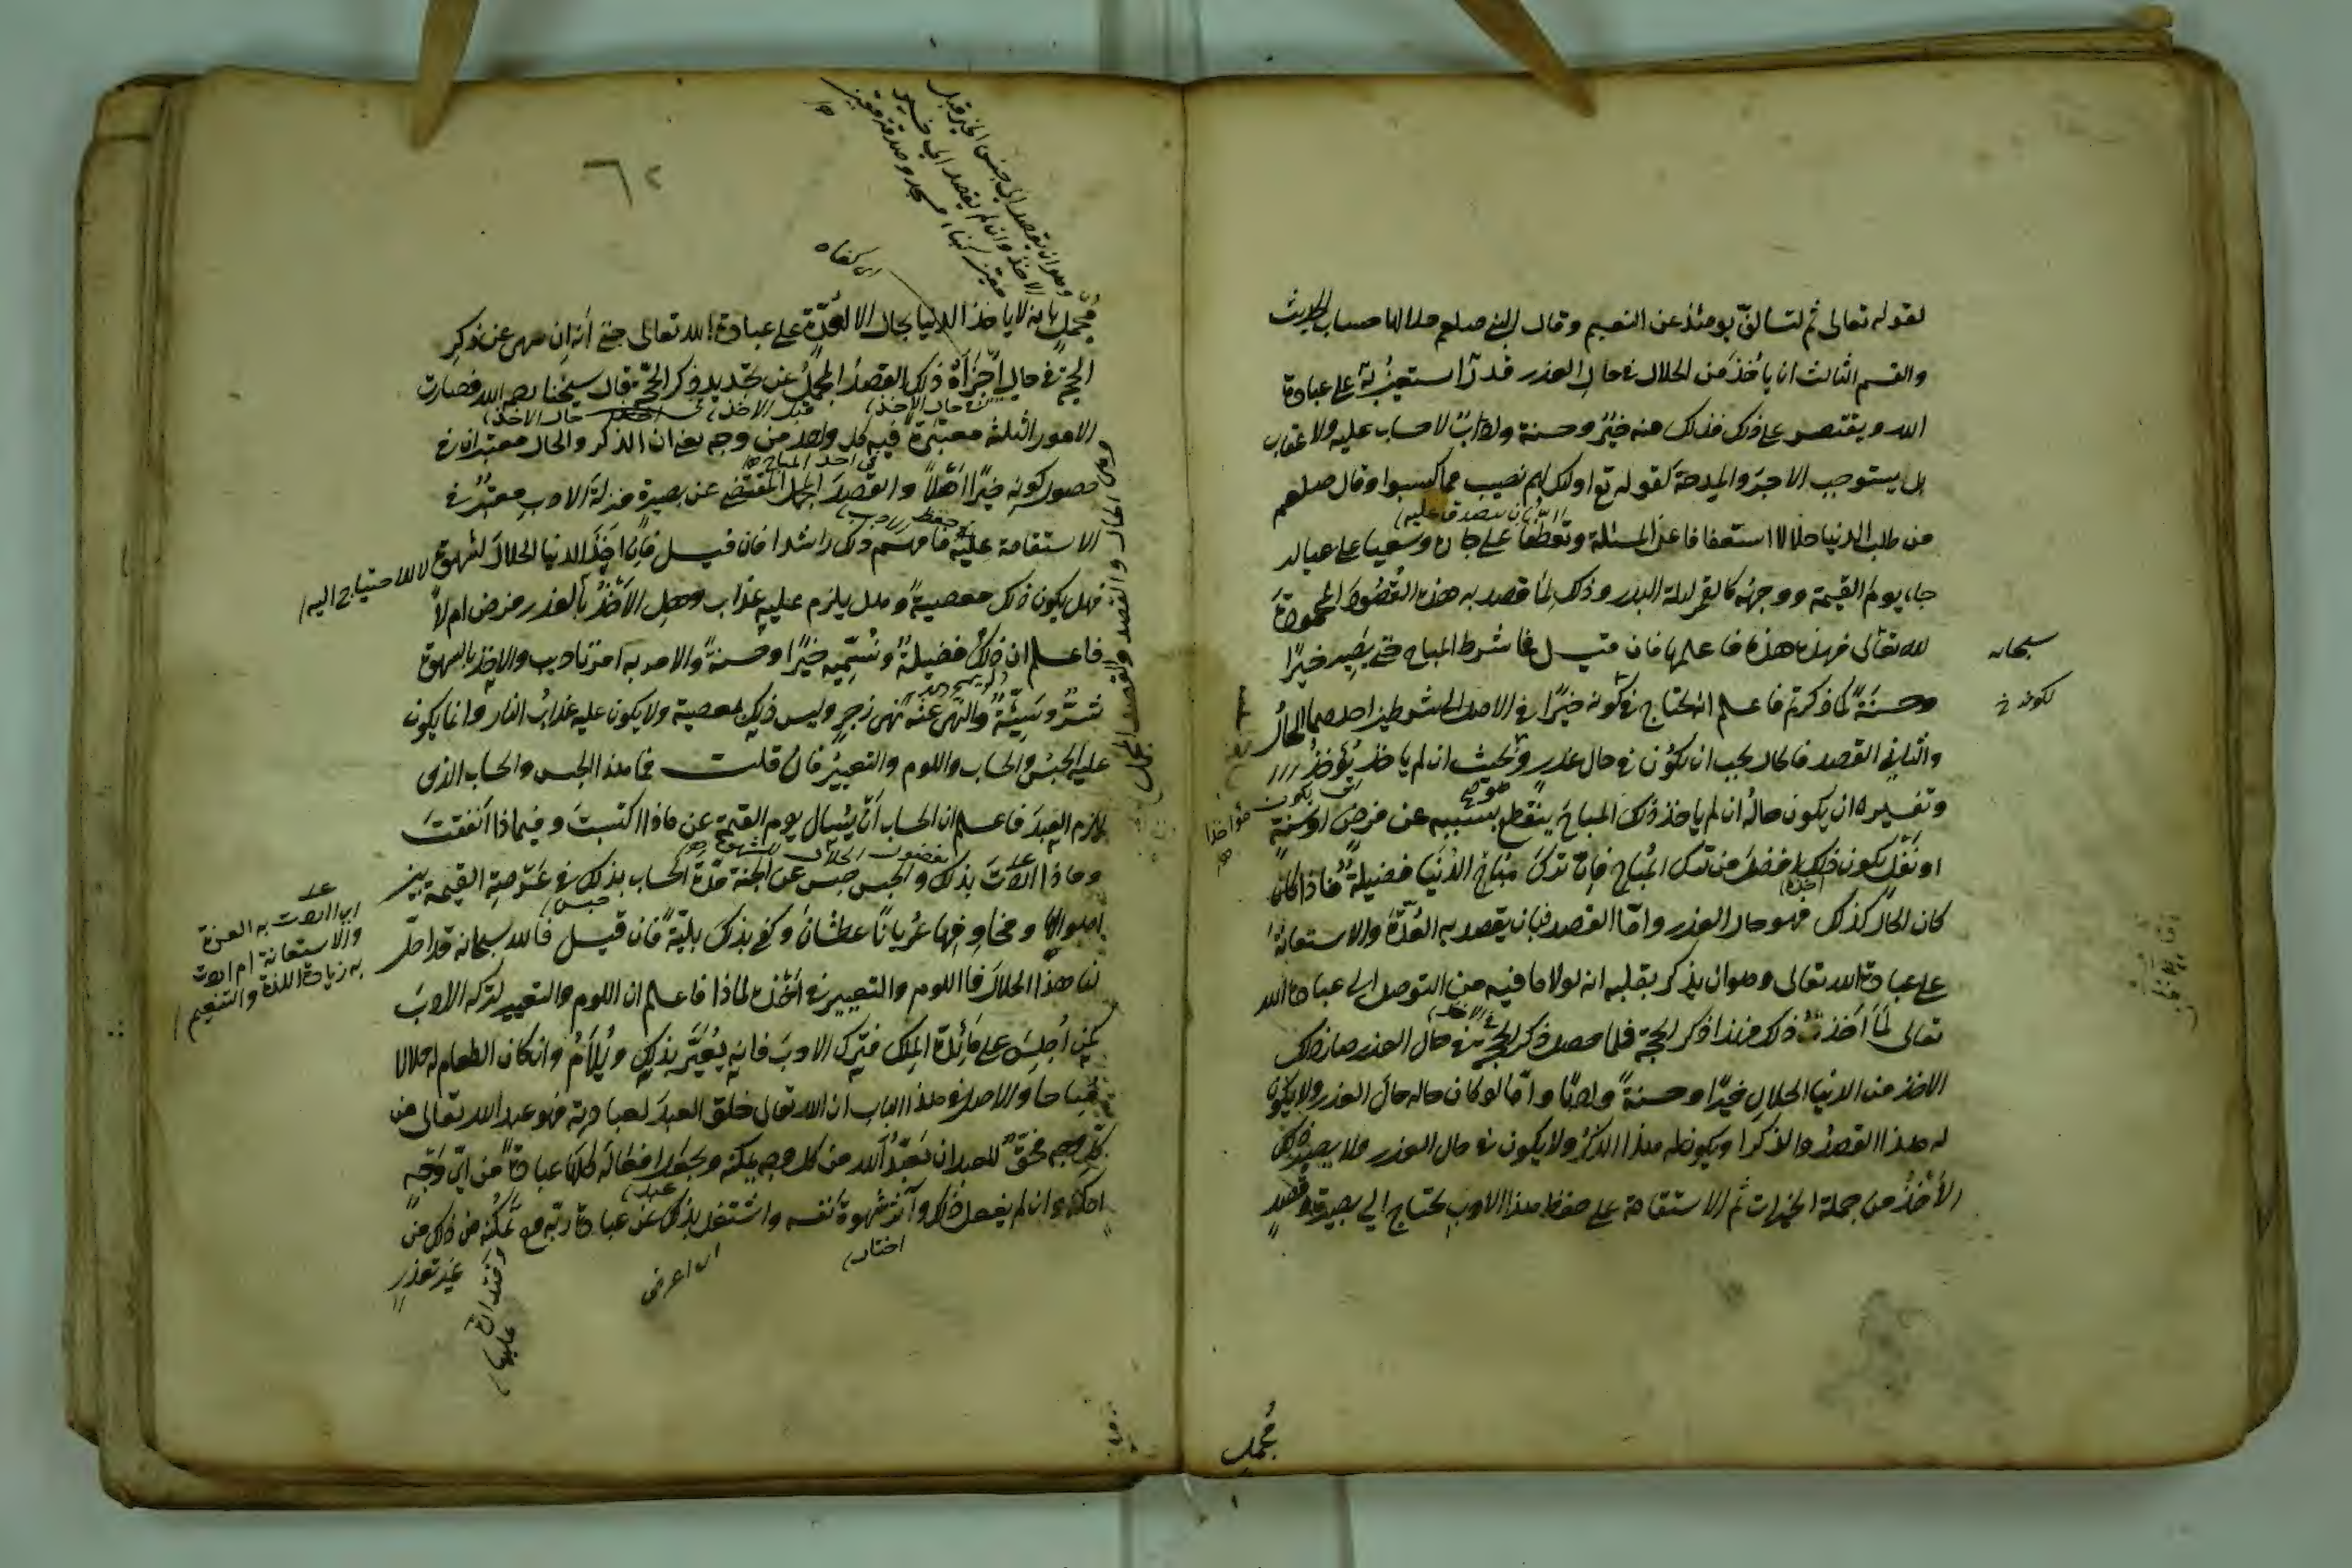 لقوله تعالى ثم لتسألن يومئذ عن النعيم وقال النبي صلعم حلالها حساب الحديث
والقسم الثالث ان يأخذ من الحلال في حال العذر قدرا يستعين به على عبادة
الله ويقتصر على ذلك فذلك منه خير وحسنة وادب لا حساب عليه ولا عقاب
بل يستوجب الاجر والمدحة لقوله تع اولئك لهم نصيب مما كسبوا وقال صلعم
من طلب الدنيا حلالا استعفافا عن المسئلة وتعطفا على جاره وسعيا على عياله
جاء يوم القيمة ووجهه كالقمر ليلة البدر وذلك لما قصد به هذه القصود المحمودة
لله تعالى فهذه هذه فاعلمها فان قيل فما شرط المباح حتى يصير خيرا
سبحانه
وحسنة كما ذكرتم فاعلم انه يحتاج في كونه خيرا في الاصل الى شرطين احدهما الحال
لكونه خ
والثاني القصد فالحال يجب ان يكون في حال عذر وبحيث ان لم ياخذ يؤخذ
وتفسيره ان يكون حاله ان لم ياخذ ذلك المباح ينقطع بسببه عن فرض او سنة
او نفل يكون ذلك افضل من ترك المباح فان ترك مباح الدنيا فضيلة فاذا كان
كان الحال كذلك فهو حال العذر واما القصد فبان يقصد به العدة والاستعانة
على عبادة الله تعالى وهو ان يذكر بقلبه انه لولا ما فيه من التوصل الى عبادة الله
تعالى لما اخذت ذلك فهذا ذكر الحجة فلما حصل ذكر الحجة في حال العذر صار ذلك
الاخذ من الدنيا الحلال خيرا وحسنة وادبا واما لو كان حاله حال العذر ولا يكون
له هذا القصد والذكر او يكون له هذا الذكر ولا يكون في حال العذر ولا يصير ذلك
الاخذ من جملة الخيرات ثم الاستقامة على حفظ هذا الادب يحتاج الى بصيرة وقصد
مجمل
٦٢
اى كفاه
مجمل بانه لا ياخذ الدنيا بحال الا للعدة على عبادة الله تعالى حتى انه ان سهى عن ذكر
الحجة في حال اجزأه ذلك القصد المجمل عن تجديد ذكر الحجة قال شيخنا رحمه الله فصارت
الامور الثلثة معتبرة فيه كل واحد من وجه يعني ان الذكر والحال معتبران في
حصول كونه خيرا اصلا والقصد المجمل المقتضى عن بصيرة منزلة الادب معتبر في
الاستقامة عليه فافهم ذلك راشدا فان قيل فان اخذ الدنيا الحلال لشهوة لا للاحتياج اليه
فهل يكون ذلك معصية وهل يلزم عليه عذاب وهل الاخذ بالعذر فرض ام لا
فاعلم ان ذلك فضيلة ونسميه خيرا وحسنة والامر به امر تاديب والاخذ بالشهوة
شر وسيئة والنهى عنه نهى زجر وليس ذلك بمعصية ولا يكون عليه عذاب النار وانما يكون
عليه الحبس والحساب واللوم والتعيير فان قلت فما هذا الحبس والحساب الذى
يلزم العبد فاعلم ان الحساب ان يسأل يوم القيمة عن ماذا اكتسبت وفيماذا انفقت
وماذا اردت بذلك والحبس حبس عن الجنة مدة الحساب بذلك في عرصة القيمة بين
اهوالها ومخاوفها عريانا عطشانا وكفى بذلك بلية فان قيل فالله سبحانه قد احل
لنا هذا الحلال فاللوم والتعيير في اخذه لماذا فاعلم ان اللوم والتعيير لترك الادب
كمن اجلس على مائدة الملك فترك الادب فانه يعير بذلك ويلام وان كان الطعام له حلالا
مباحا والاصل في هذا الباب ان الله تعالى خلق العبد لعبادته فهو عبد الله تعالى من
كل وجه فحق للعبد ان يعبد الله من كل وجه يمكنه ويجعل افعاله كلها عبادة من اى وجه
امكنه وان لم يفعل ذلك وآثر شهوة نفسه واشتغل بذلك عن عبادة ربه مع تمكنه من ذلك من
غير تعذر
اختار
اى اعرض
اى اردت به العدة
والاستعانة ام اردت
به زيادة اللذة والتنعم